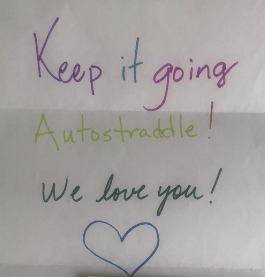 Keep it going
Autostraddle!
We love you!